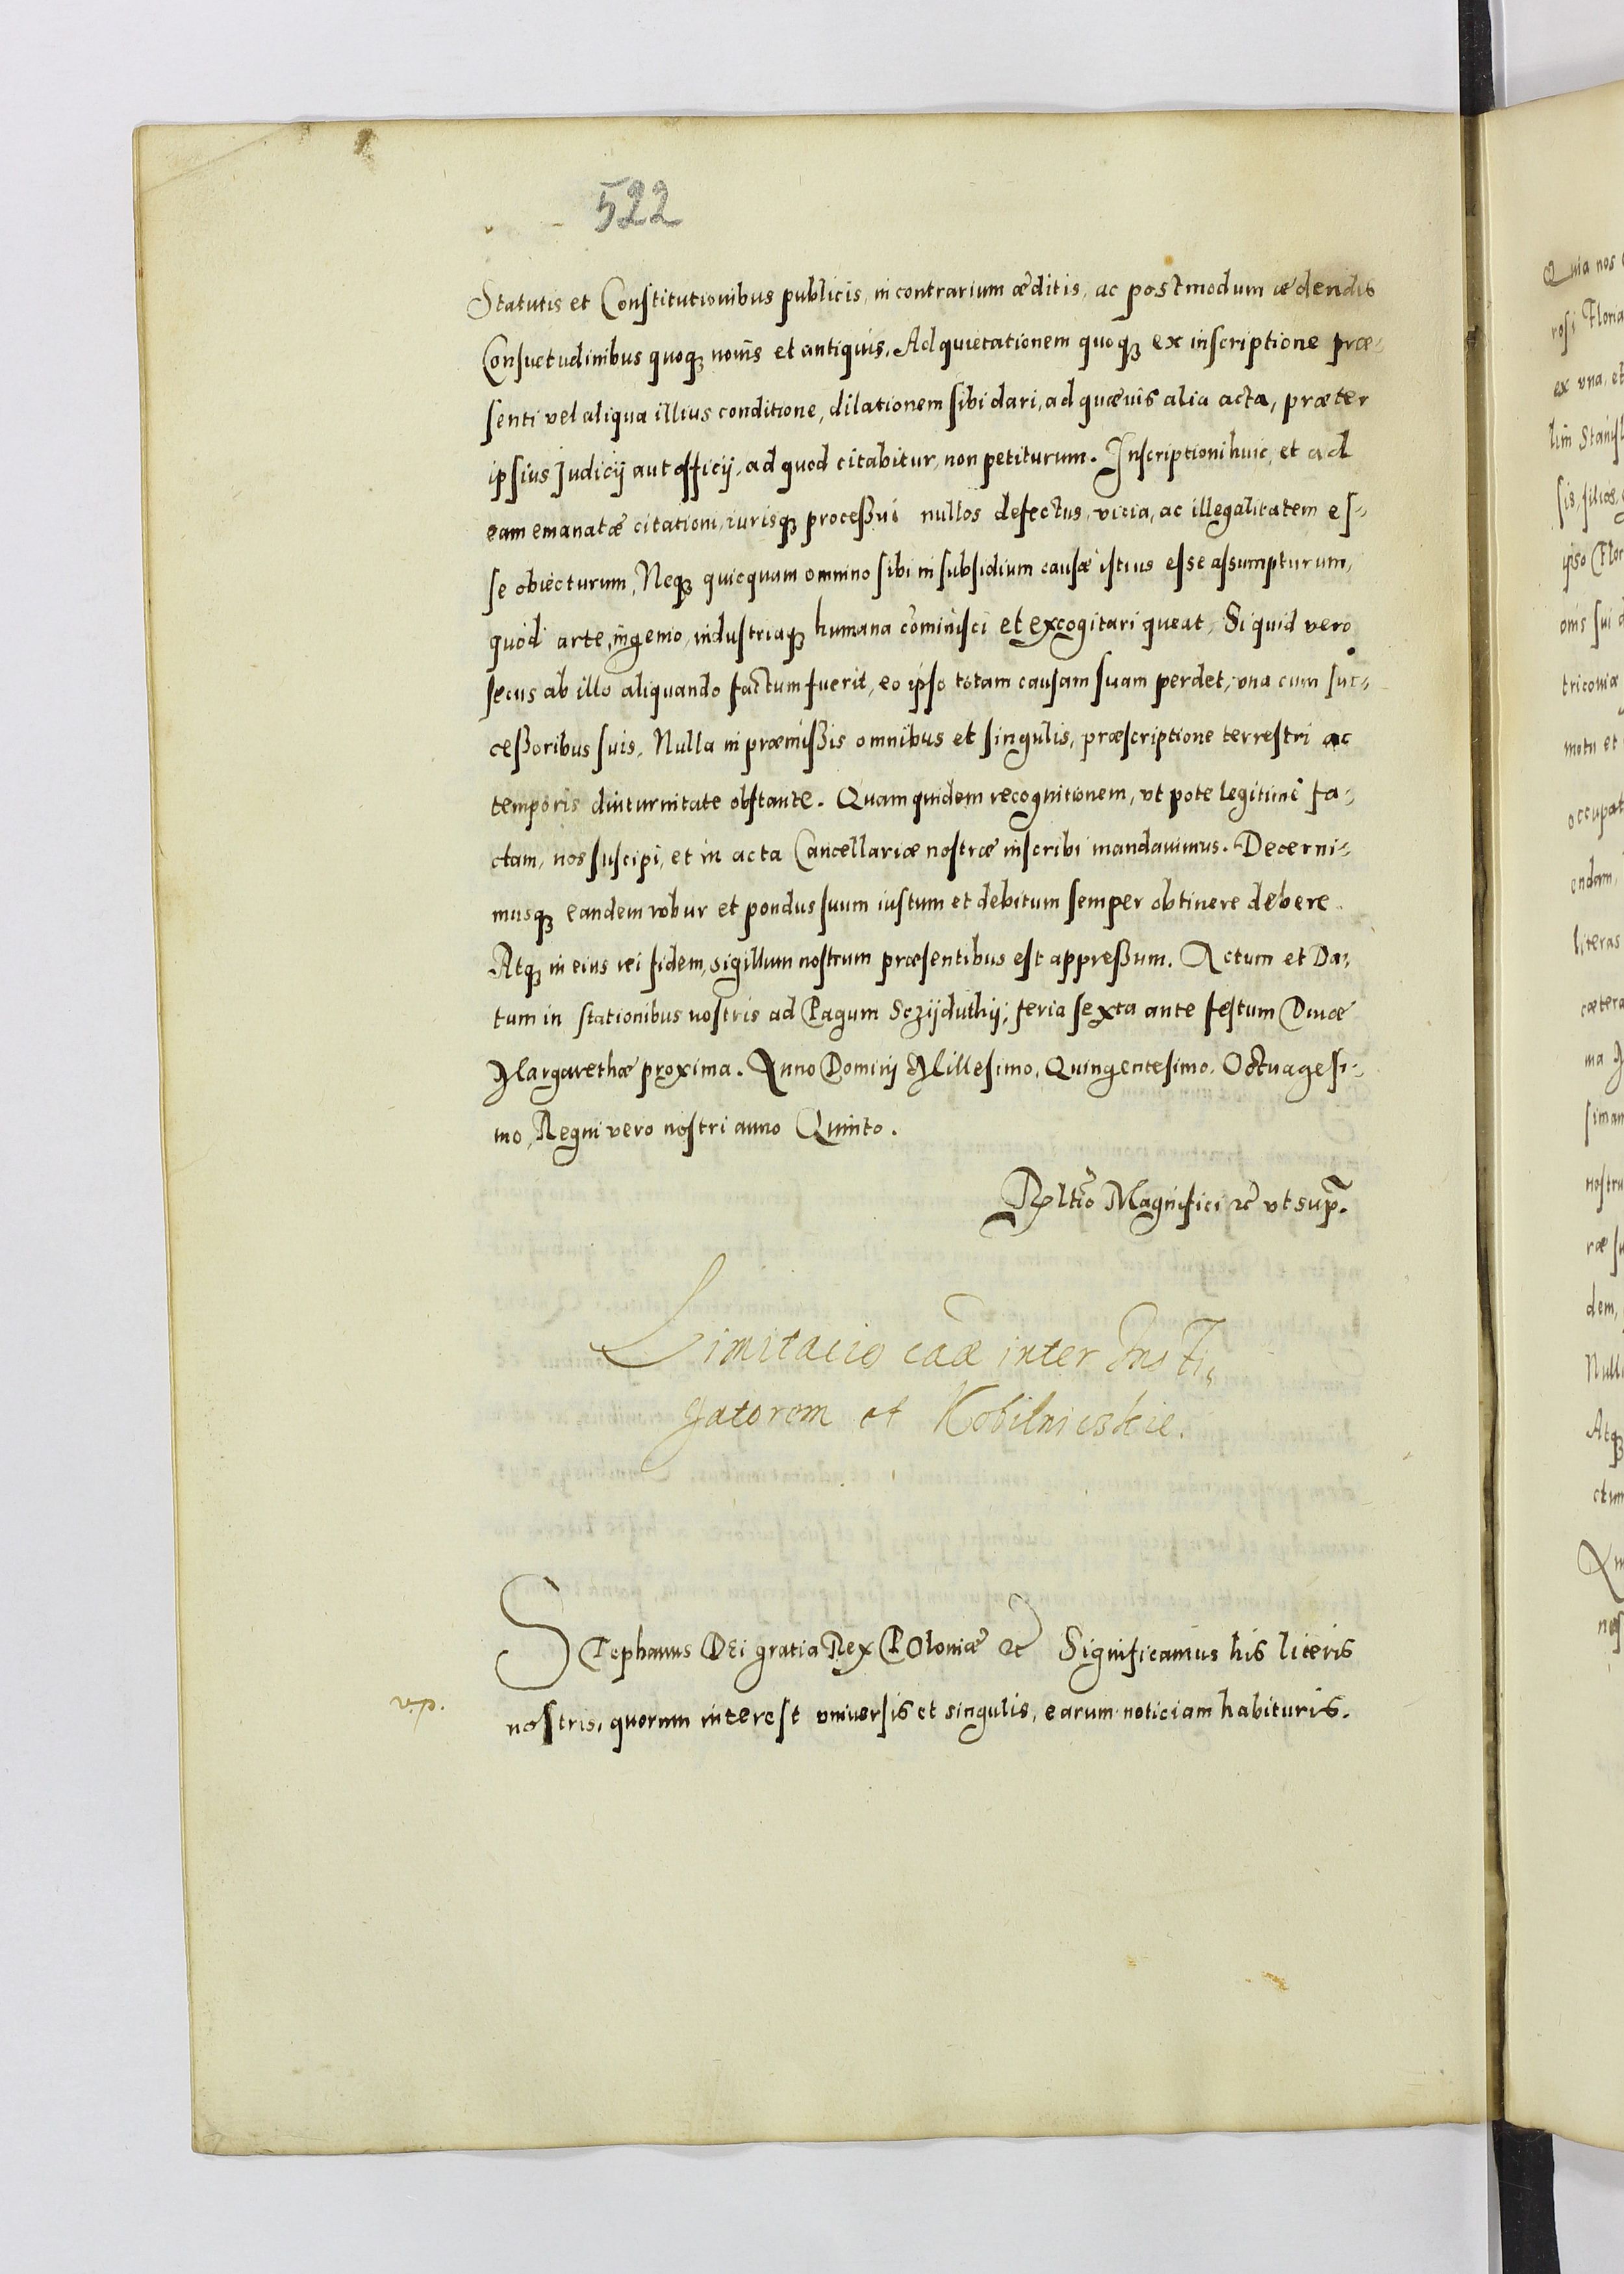 522
Statutis et Constitutionibus publicis, in contrarium æditis, ac postmodum ædendis
Consuetudinibus quoqꝫ novis et antiquis. Ad quietationem quoqꝫ ex inscriptione præ-
senti vel aliqua illius conditione, dilationem sibi dari, ad quævis alia acta, præter
ipsius Judicij aut officij, ad quod citabitur, non petiturum. Inscriptioni huic, et ad
eam emanatæ citationi, iurisqꝫ processui nullos defectus, vicia, ac illegalitatem es-
se obiecturum, Neqꝫ quicquam omnino sibi in subsidium causæ istius esse assumpturum,
quod arte, ingenio, industriaqꝫ humana cōminisci et excogitari queat, Si quid vero
secus ab illo aliquando factum fuerit, eo ipso totam causam suam perdet, una cum suc-
cessoribus suis, Nulla in præmissis omnibus et singulis, præscriptione terrestri ac
temporis diuturnitate obstante. Quam quidem recognitionem, ut pote legitime fa-
ctam, nos suscipi, et in acta Cancellariæ nostræ inscribi mandavimus. Decerni-
musqꝫ eandem robur et pondus suum iustum et debitum semper obtinere debere.
Atqꝫ in eius rei fidem, sigillum nostrum præsentibus est appressum. Actum et Da-
tum in stationibus nostris ad Pagum Sczijduthij, feria sexta ante festum Divæ
Margarethæ proxima. Anno Domini Millesimo, Quingentesimo, Octuagesi-
mo, Regni vero nostri anno Quinto.
Rltio Magnifici ꝛc ut sup.
Limitacio cāæ inter Insti-
gatorem et Kobilnieskie.
Stephanus Dei gratia Rex Poloniæ ꝛc Significamus his literis
v.p.
nostris, quorum interest universis et singulis, earum noticiam habituris.